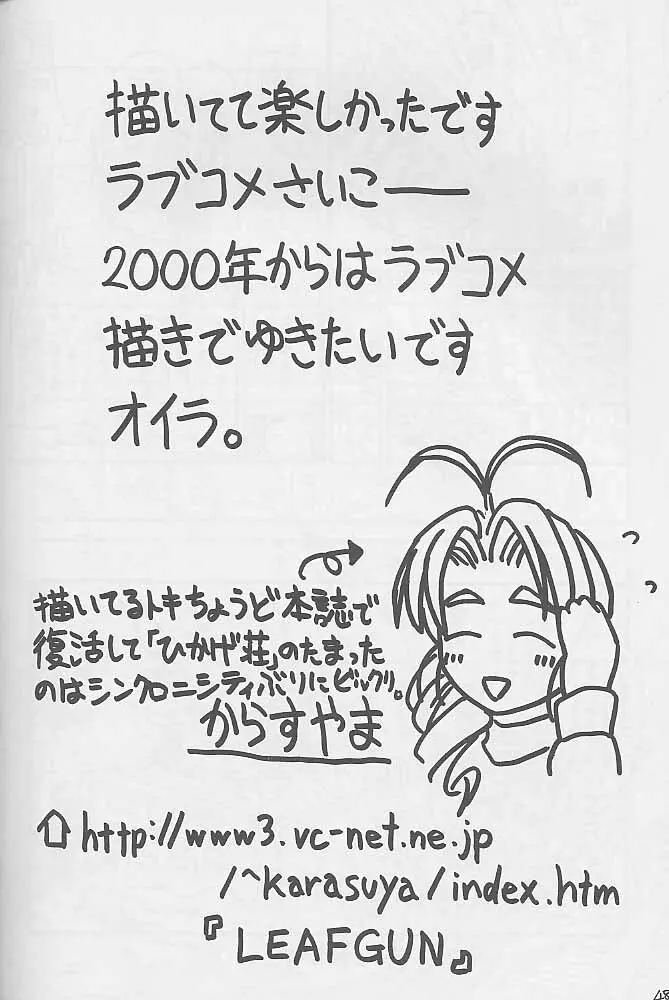 描いてて楽しかったです
ラブコメさいこ——
2000年からはラブコメ
描きでゆきたいです
オイラ。
描いてるトキちょうど本誌で
復活して「ひかげ荘」のたまった
のはシンクロニシティぶりにビックリ。
からすやま
http://www3.vc-net.ne.jp
/~karasuya/index.htm
『LEAFGUN』